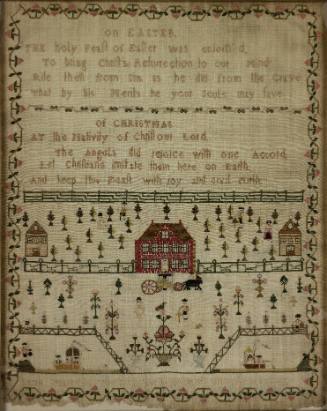 ON EASTER
THE Holy Feast of Easter was
To bring Christs Resurrection to our Mind
Rise then from Sin as he did from the Grave
that by his Merits he your Souls may save
OF CHRISTMAS
AT the Nativity of Christ our Lord
The Angels did rejoice with one Accord
Let Christians imitate them here on Earth
And keep this Feast with joy and Mirth